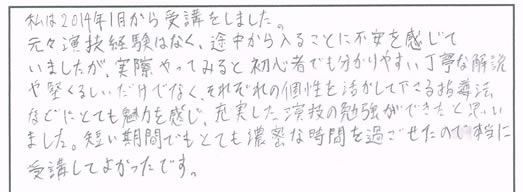 私は2014年1月から受講をしました。
元々演技経験はなく、途中から入ることに不安を感じて
いましたが、実際やってみると初心者でも分かりやすい丁寧な解説
や堅くるしいだけでなく、それぞれの個性を活かして下さる指導法
などにとても魅力を感じ、充実した演技の勉強ができたと思い
ました。短い期間でもとても濃密な時間を過ごせたので本当に
受講してよかったです。